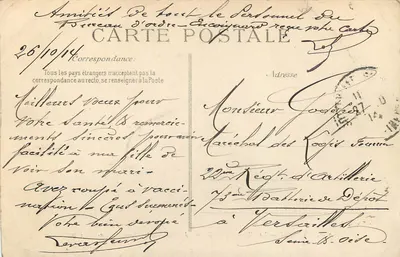 Amitiés de tout le Personnel du
Bureau d'ordre - Encoignard reçu votre carte
CARTE POSTALE
26/10/14
Correspondance:
Tous les pays étrangers n'acceptent pas la
correspondance au recto, se renseigner à la Poste
Adresse
Meilleurs vœux pour
votre santé & remercie-
ments sincères pour avoir
facilité à ma fille de
voir son mari -
Avez coupé à vacci-
nation -
Votre bien dévoué
Monsieur
Maréchal des Logis Fourrier
22me Régt. d'Artillerie
73me Batterie de Dépôt
à Versailles
Seine & Oise